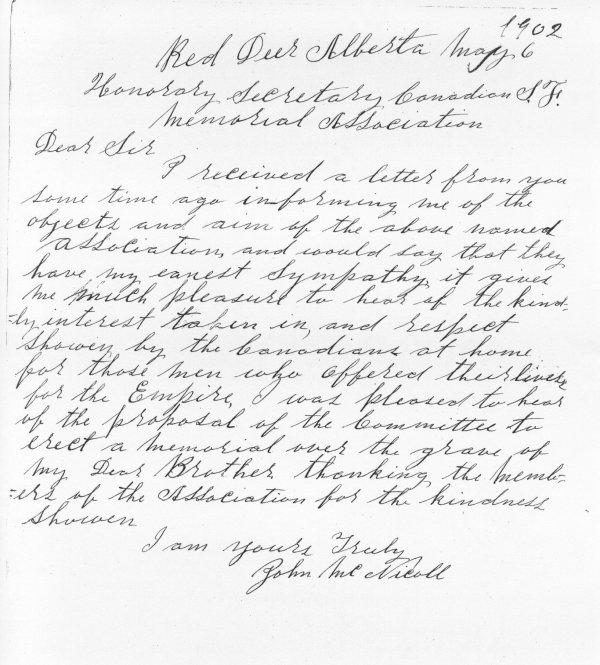 1902
Red Deer Alberta May 6
Honorary Secretary Canadian S. F.
Memorial Association
Dear Sir
I received a letter from you
some time ago in-forming me of the
objects and aim of the above named
Association, and would say that they
have my earnest sympathy, it gives
me much pleasure to hear of the kind-
-ly interest taken in, and respect
showen by the Canadians at home
for those men who offered their lives
for the Empire, I was pleased to hear
of the proposal of the Committee to
erect a memorial over the grave of
my Dear Brother thanking the memb-
-ers of the Association for the kindness
showen
I am yours Truly
John Mc Nicoll